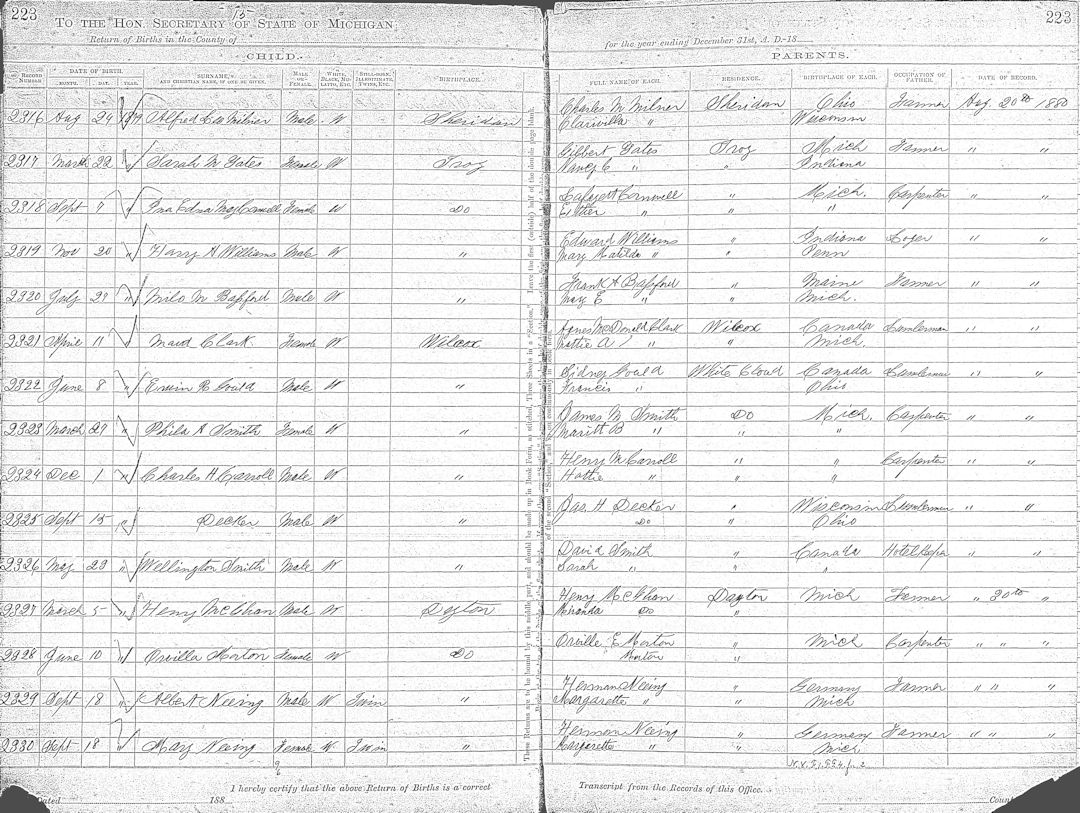 223
15
TO THE HON. SECRETARY OF STATE OF MICHIGAN:
223
Return of Births in the County of
for the year ending December 31st, A. D.-18
CHILD.
PARENTS.
RECORD NUMBER
DATE OF BIRTH.
MONTH. DAY. YEAR.
SURNAME, AND CHRISTIAN NAME, IF ONE BE GIVEN.
MALE OR FEMALE.
WHITE, BLACK, MULATTO, ETC.
STILL-BORN, ILLEGITIMATE, TWINS, ETC.
BIRTHPLACE.
FULL NAME OF EACH.
RESIDENCE.
BIRTHPLACE OF EACH.
OCCUPATION OF FATHER.
DATE OF RECORD.
2316 Aug 24 1879 Alfred Lee Milner Male W Sheridan Charles M Milner Sheridan Ohio Farmer Aug 20th 1880
Clarivilla " Wisconsin
2317 March 22 " Sarah M Gates Female W Troy Gilbert Gates Troy Mich Farmer " "
Nancy E " " Indiana
2318 Sept 7 " Ina Edna Female W Do Lafayett " Mich. Carpenter " "
Esther " " "
2319 Nov 20 " Harry A Williams Male W " Edward Williams " Indiana " "
Mary Matilda " " Penn
2320 July 29 " Milo M Male W " Frank A " Maine Farmer " "
Mary E " " Mich.
2321 April 11 " Maud Clark Female W Wilcox McDonald Clark Wilcox Canada Lumberman " "
Hattie A " " Mich.
2322 June 8 " Erwin R Gould Male W " Sidney Gould White Cloud Canada Lumberman " "
Francis " Ohio
2323 March 29 " Phila A Smith Female W " James M Smith Do Mich. Carpenter " "
Maritt B " " "
2324 Dec 1 " Charles H Carroll Male W " Henry M Carroll " " Carpenter " "
Hattie " "
2325 Sept 15 " Decker Male W " Jas. H Decker " Wisconsin Lumberman " "
Do Ohio
2326 May 23 " Wellington Smith Male W " David Smith " Canada " "
Sarah " "
2327 March 5 " Henry Male W Dayton Henry Dayton Mich Farmer " 20th "
Miranda Do "
2328 June 10 " Orvilla Morton Female W Do Orville E Morton " Mich Carpenter " " "
Morton "
2329 Sept 18 " Albert Neeing Male W Twin " Herman Neeing " Germany Farmer " " "
Margarette " " Mich
2330 Sept 18 " May Neeing Female W Twin " Herman Neeing " Germany Farmer " " "
Margarette " " Mich
These Returns are to be bound by this middle part, and should be made up in Book Form, as selected, Three Sheets in a "Section." Leave the first (outside) half of the double page blank.
I hereby certify that the above Return of Births is a correct
Transcript from the Records of this Office.
Dated 188